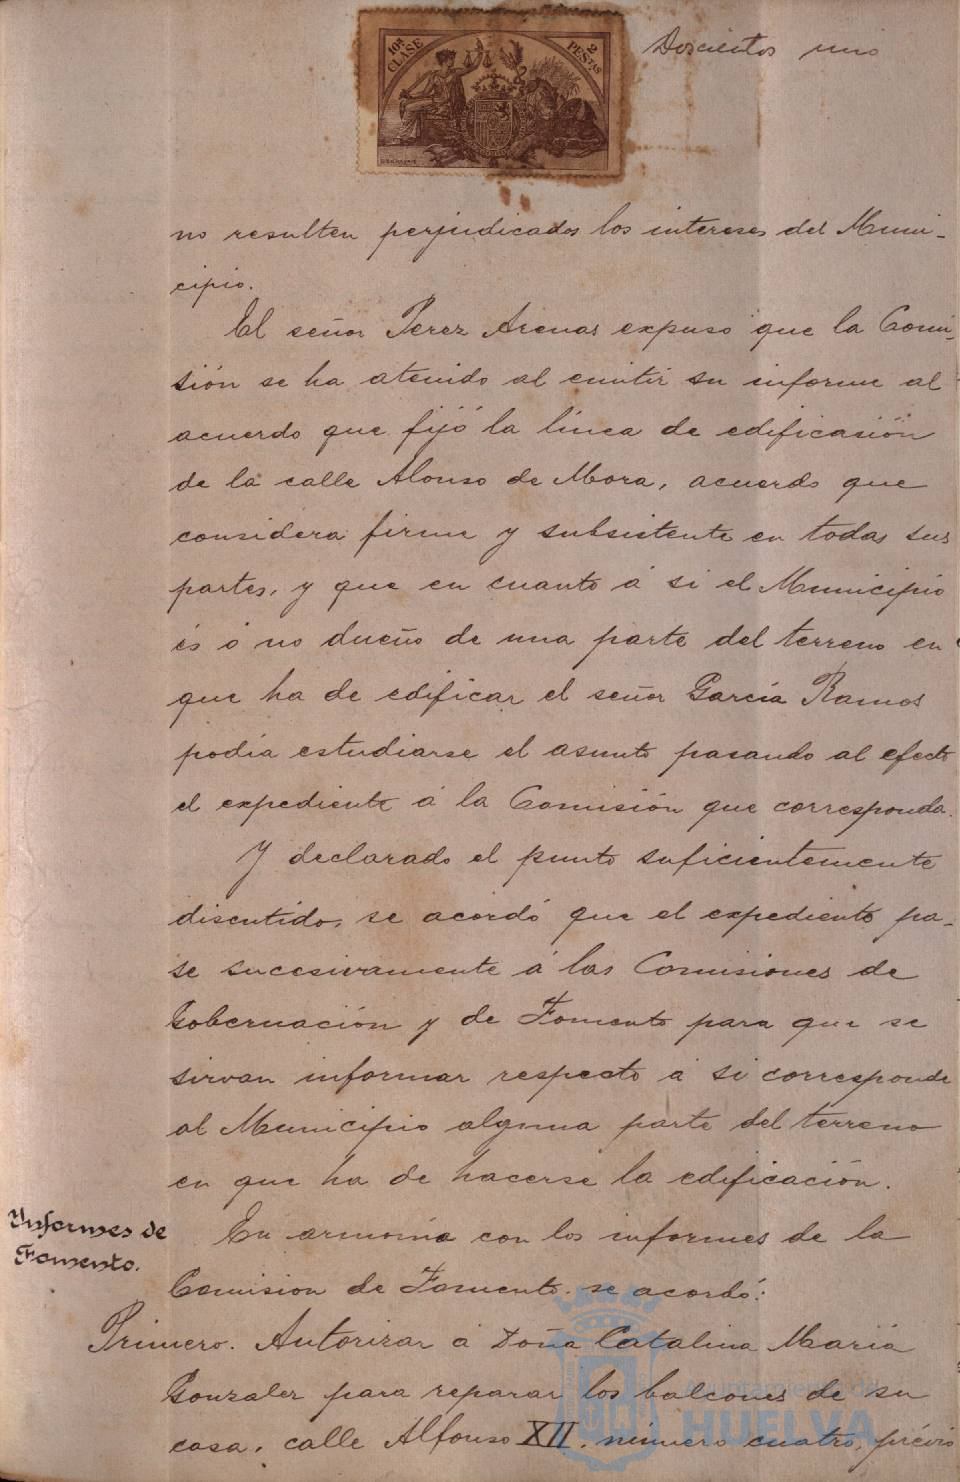 Doscientos uno
10ª CLASE
2 PESTAS
no resulten perjudicados los intereses del Muni-
cipio.
El señor Perez Arenas expuso que la Comi-
sión se ha atenido al emitir su informe al
acuerdo que fijó la línea de edificasión
de la calle Alonso de Mora, acuerdo que
considera firme y subsistente en todas sus
partes, y que en cuanto á si el Municipio
és ó no dueño de una parte del terreno en
que ha de edificar el señor García Ramos
podía estudiarse el asunto pasando al efecto
el expediente á la Comisión que corresponda.
Y declarado el punto suficientemente
discutido, se acordó que el expediente pa-
se sucesivamente á las Comisiones de
Gobernación y de Fomento para que se
sirvan informar respecto á si corresponde
al Municipio alguna parte del terreno
en que ha de hacerse la edificación.
Informes de
Fomento.
En armonía con los informes de la
Comision de Fomento se acordó:
Primero. Autorizar á Doña Catalina María
Gonzalez para reparar los balcones de su
casa, calle Alfonso XII, número cuatro, prévio
Ayuntamiento de
HUELVA